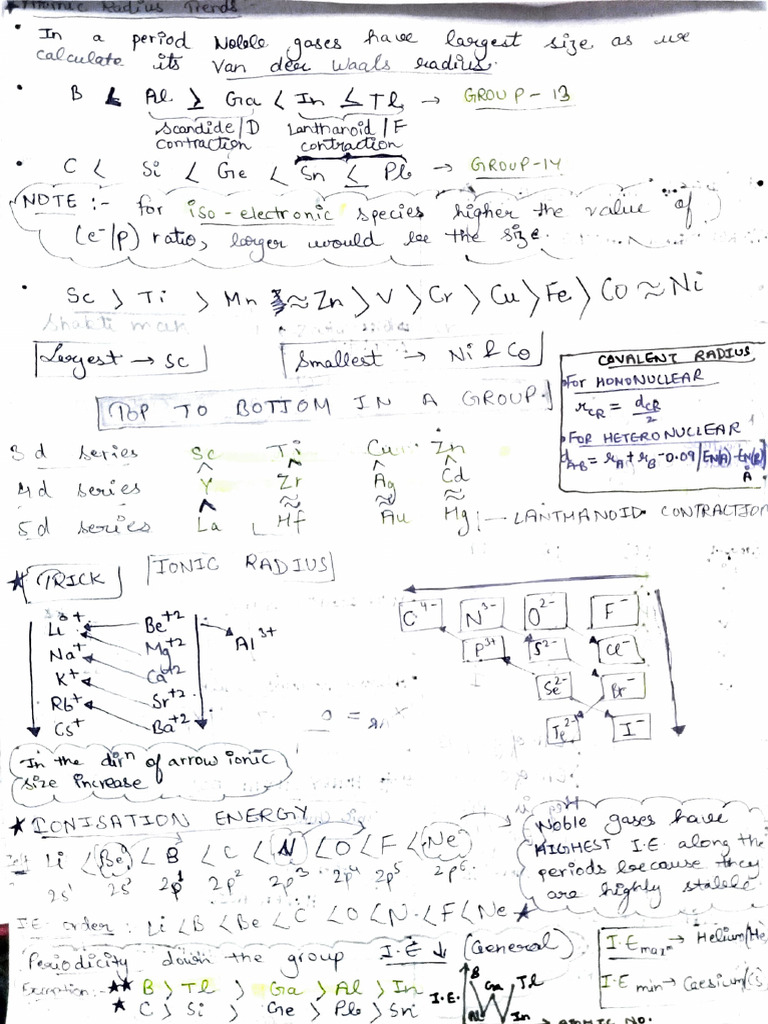 ★ Atomic Radius Trends -
• In a period Noble gases have largest size as we
calculate its Van der Waals radius.
• B < Al > Ga < In ≤ Tl → GROUP - 13
Scandide/D contraction Lanthanoid/F contraction
• C < Si < Ge < Sn ≤ Pb → GROUP-14
NOTE :- for iso-electronic species higher the value of
(e⁻/p) ratio, larger would be the size.
• Sc > Ti > Mn ≈ Zn > V > Cr > Cu > Fe > Co ≈ Ni
Shakti man
Largest → Sc Smallest → Ni & Co
COVALENT RADIUS
• For HOMONUCLEAR
r_CR = d_CR/2
• FOR HETERONUCLEAR
d_AB = r_A + r_B - 0.09 |EN(A) - EN(B)|
Å
TOP TO BOTTOM IN A GROUP.
3d series Sc Ti Cu Zn
^ ^ ^ ^
4d series Y Zr Ag Cd
^ ≈ ≈ ≈
5d series La Hf Au Hg — LANTHANOID CONTRACTION
★ TRICK IONIC RADIUS
Li⁺ Be⁺² Al³⁺
Na⁺ Mg⁺²
K⁺ Ca⁺²
Rb⁺ Sr⁺²
Cs⁺ Ba⁺²
C⁴⁻ N³⁻ O²⁻ F⁻
P³⁺ S²⁻ Cl⁻
Se²⁻ Br⁻
Te²⁻ I⁻
In the dirⁿ of arrow ionic
size increase
★ IONISATION ENERGY
Li < Be < B < C < N < O < F < Ne
2s¹ 2s² 2p¹ 2p² 2p³ 2p⁴ 2p⁵ 2p⁶
I.E order : Li < B < Be < C < O < N < F < Ne ★
Noble gases have
HIGHEST I.E along the
periods because they
are highly stable
Periodicity down the group I.E ↓ (General)
Exception :- ★★ B > Tl > Ga > Al > In
★ C > Si > Ge > Pb > Sn
I.E.
B Ga Tl
Al In
→ ATOMIC NO.
I.E max^m → Helium/He
I.E min → Caesium/Cs